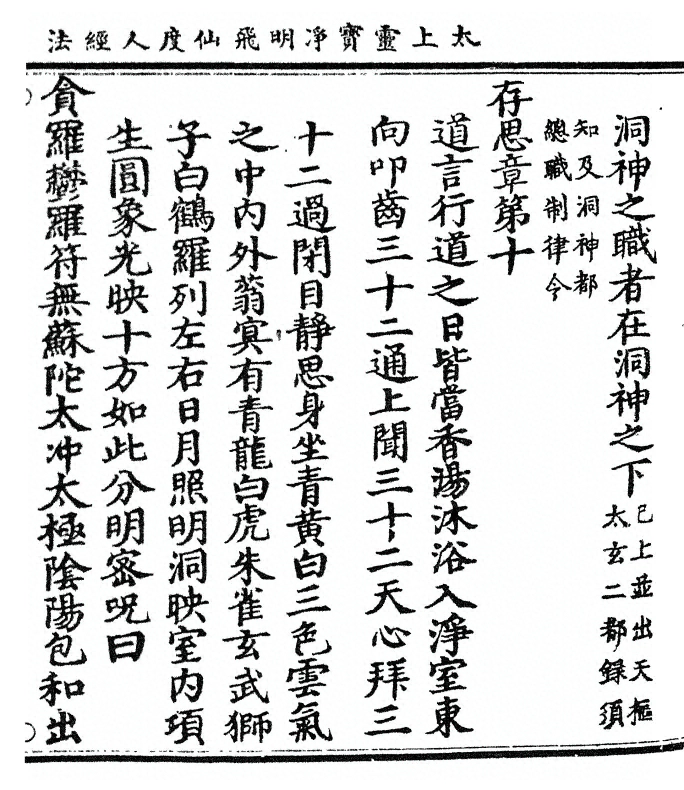 太上靈寶淨明飛仙度人經法
洞神之職者在洞神之下已上並出天樞太玄二都錄須
知及洞神都總職制律令
存思章第十
道言行道之日皆當香湯沐浴入淨室東
向叩齒三十二通上聞三十二天心拜三
十二過閉目靜思身坐青黃白三色雲氣
之中內外蓊冥有青龍白虎朱雀玄武獅
子白鶴羅列左右日月照明洞映室內項
生圓象光映十方如此分明密呪曰
貪羅鬱羅符無蘇陀太冲太極陰陽包和出